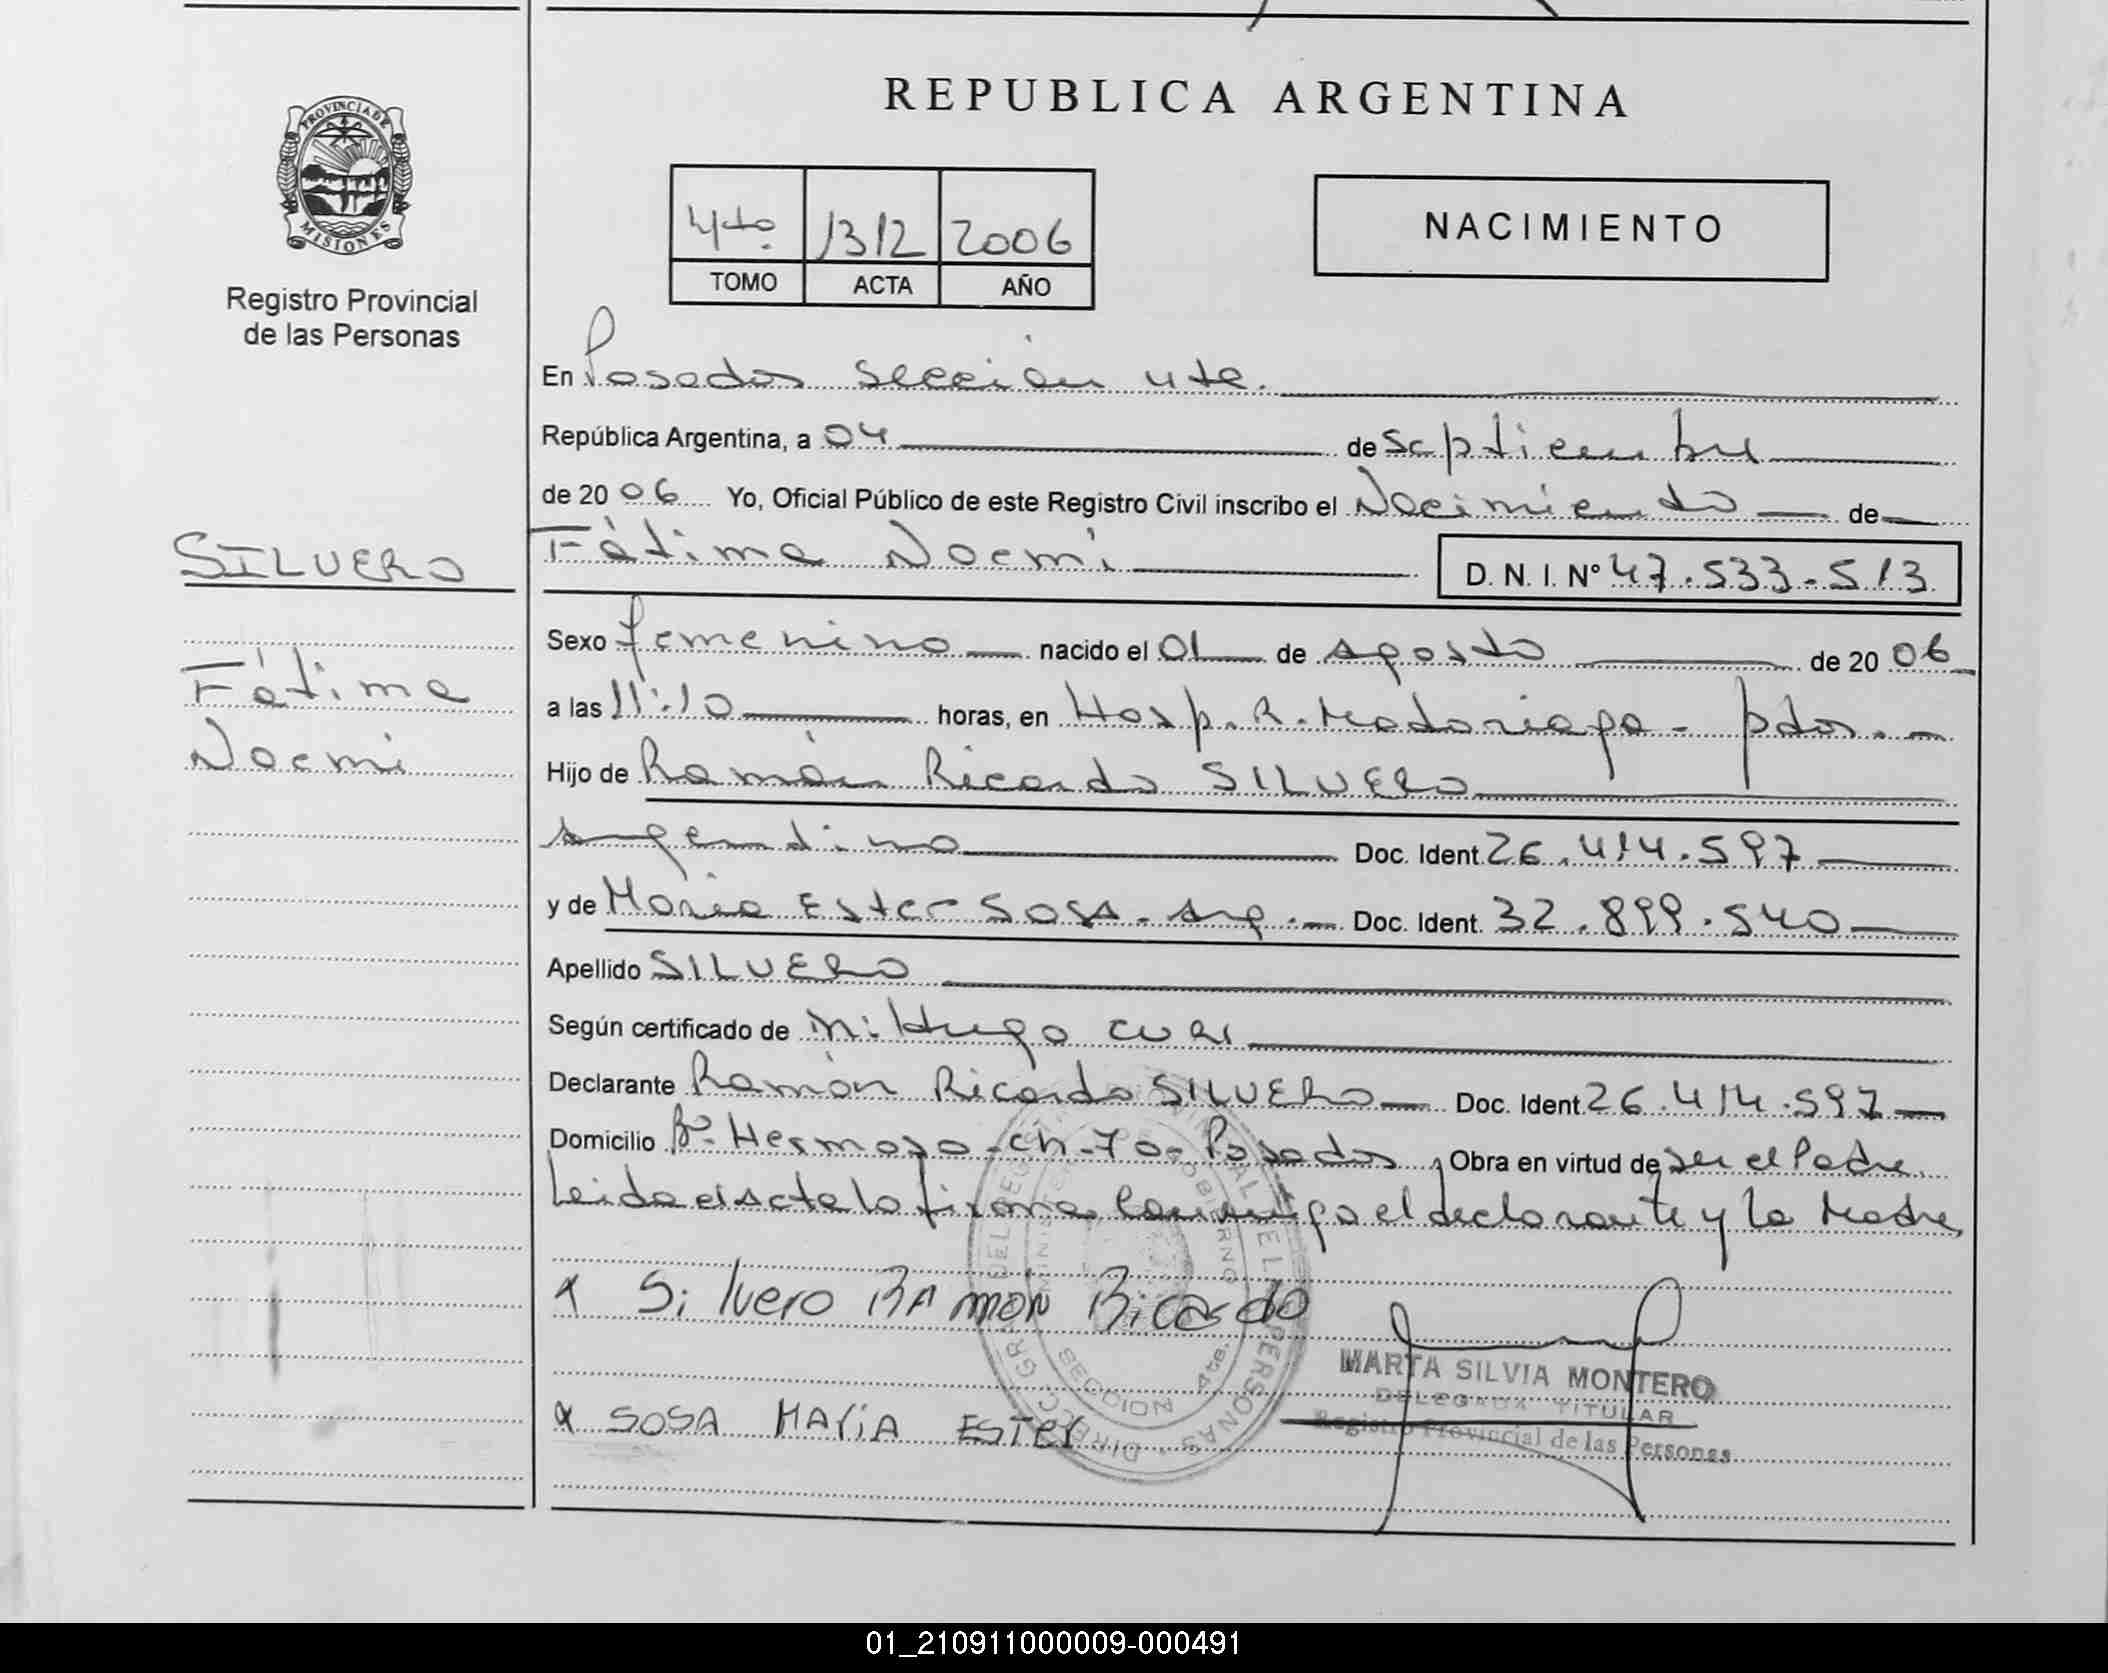 REPUBLICA ARGENTINA
PROVINCIA DE
MISIONES
Registro Provincial
de las Personas
4to. 1312 2006
TOMO ACTA AÑO
NACIMIENTO
En Posadas Sección 4ta.
República Argentina, a 04 de Septiembre
de 2006 Yo, Oficial Público de este Registro Civil inscribo el Nacimiento de
SILVERO
Fátima Noemi D. N. I. Nº 47.533.513
Sexo femenino nacido el 01 de Agosto de 2006
Fátima
Noemi
a las 11:10 horas, en Hosp. R. Madariaga - pdas. -
Hijo de Ramón Ricardo SILVERO
Argentino Doc. Ident. 26.414.597
y de María Ester SOSA - Arg. - Doc. Ident. 32.899.540
Apellido SILVERO
Según certificado de Hugo
Declarante Ramón Ricardo SILVERO Doc. Ident. 26.414.597
Domicilio Bº Hermoso - ch - 70 - Posadas Obra en virtud de ser el Padre
Leida el Acta la firma conmigo el declarante y la Madre
x Silvero RAmóN Ricardo
MARTA SILVIA MONTERO
DELEGADA TITULAR
Registro Provincial de las Personas
x SOSA MARiA ESTer
SECCION 4ta.
01_210911000009-000491